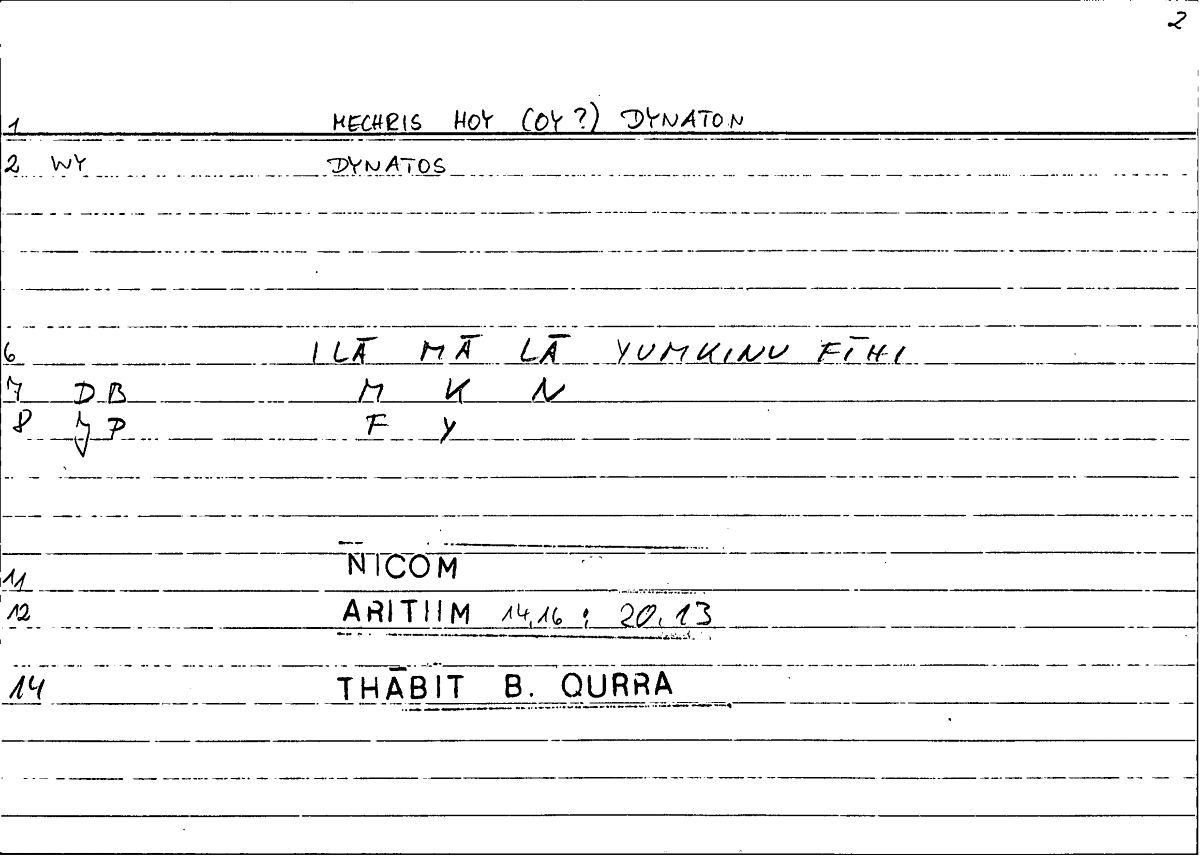 2
1 MECHRIS HOY (OY?) DYNATON
2 WY DYNATOS
6 ILĀ MĀ LĀ YUMKINU FĪHI
7 DB M K N
8 JP F Y
11 NICOM
12 ARITIIM 14,16 ; 20.13
14 THĀBIT B. QURRA